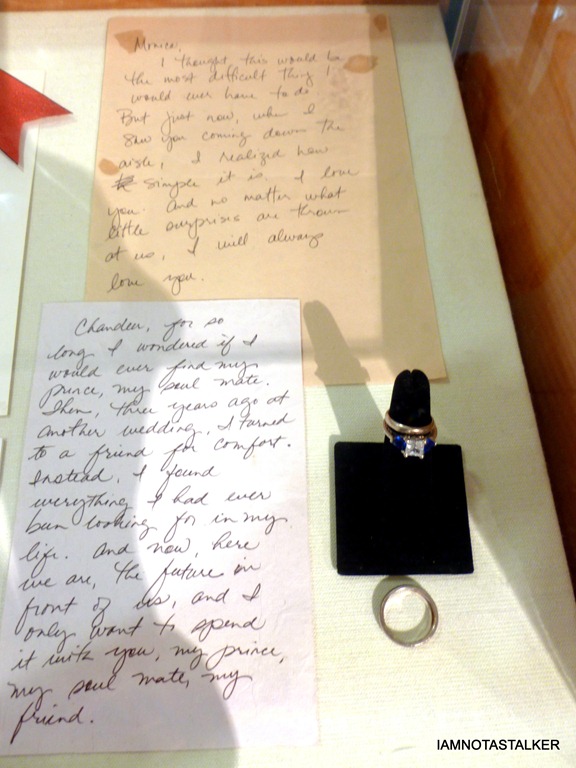 Monica,
I thought, this would be
the most difficult thing I
would ever have to do.
But just now, when I
saw you coming down the
aisle, I realized how
simple it is. I love
you. And no matter what
little surprises are thrown
at us, I will always
love you.
Chandler, for so
long I wondered if I
would ever find my
prince, my soul mate.
Then, three years ago at
another wedding, I turned
to a friend for comfort.
Instead, I found
everything I had ever
been looking for in my
life. And now, here
we are, the future in
front of us, and I
only want to spend
it with you, my prince,
my soul mate, my
friend.
IAMNOTASTALKER